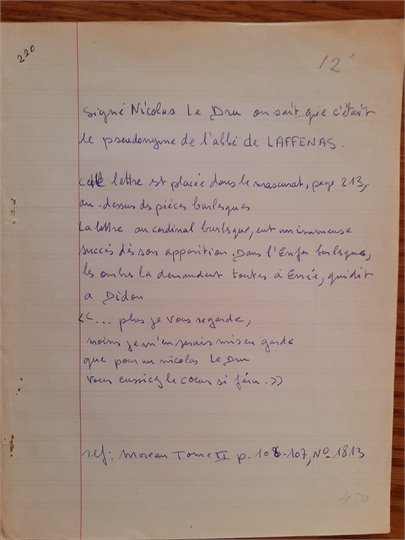 220
12'
Signé Nicolas Le Dru on sait que c'était
le pseudonyme de l'abbé de LAFFENAS.
Cette lettre est placée dans le mascurat, page 213,
au-dessus des pièces burlesques
La lettre au cardinal burlesque, eut un immense
succès dès son apparition. Dans l'Enfer burlesque,
les ombres la demandent toutes à Enée, qui dit
a Didon
<<... plus je vous regarde,
moins je m'en serais mis en garde
que pour un nicolas Le Dru
vous eussiez le cœur si féru.>>
ref: Moreau Tome II p. 106-107, No 1813
450